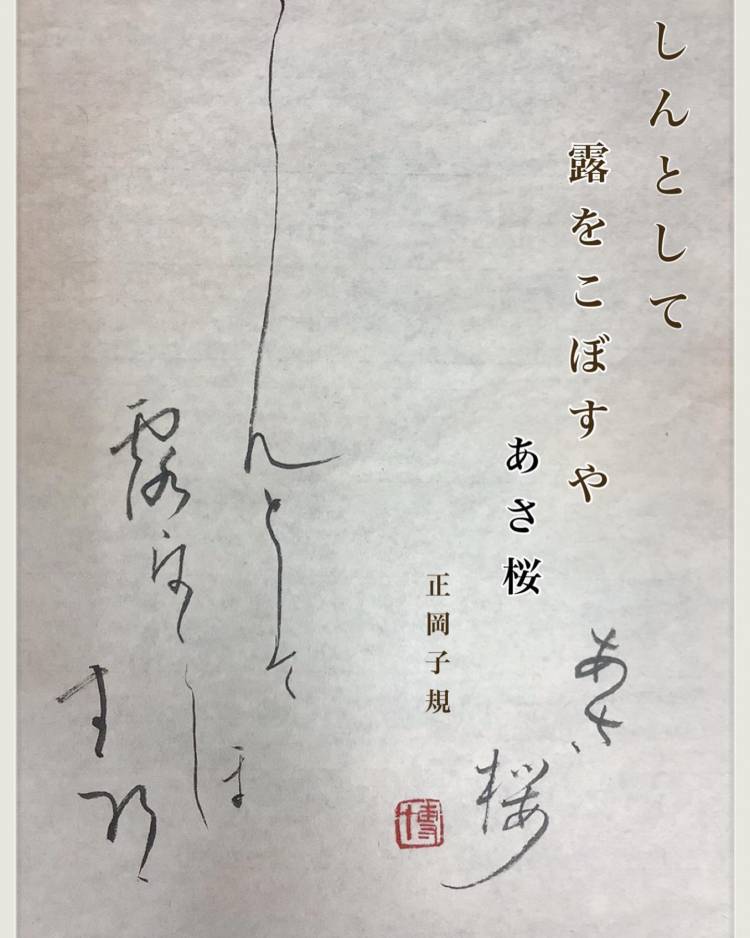 しんとして
露をこぼすや
あさ桜
正岡子規
あさ
桜
博
しんとして
露